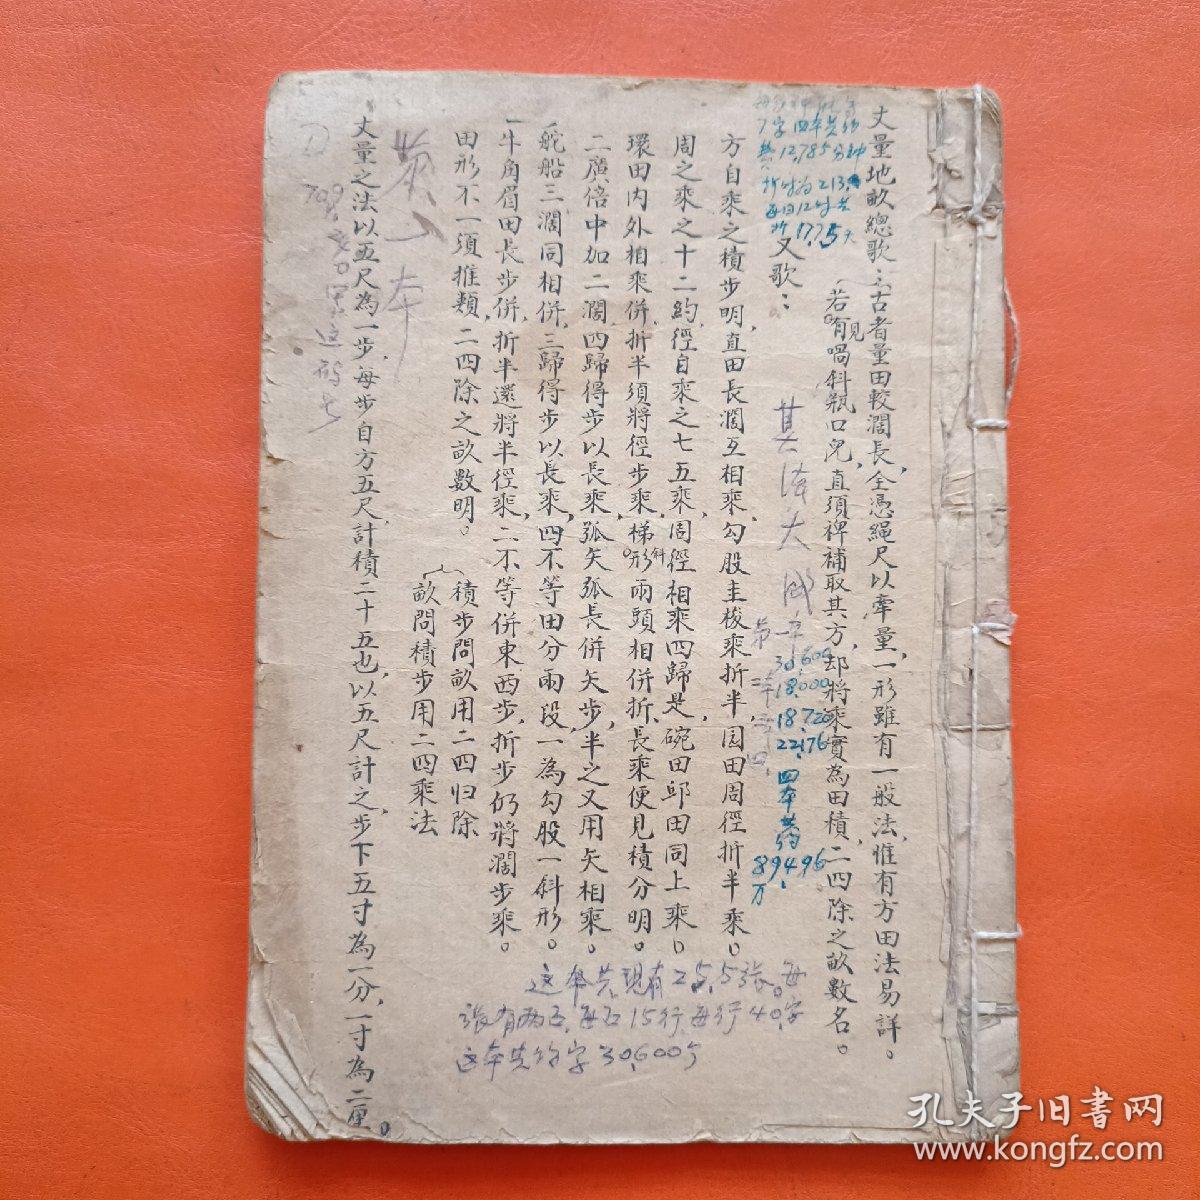 丈量地畝總歌：古者量田較濶長，全憑繩尺以牽量，一形雖有一般法，惟有方田法易詳。
若有見喎斜瓶口兒，直須裨補取其方，却將乘實為田積，二四除之畝數名。
又歌：
方自乘之積步明，直田長濶互相乘，勾股圭梭乘折半，园田周徑折半乘。
周之乘之十二約，徑自乘之七五乘，周徑相乘四歸是，碗田邱田同上乘。
環田內外相乘併，折半須將徑步乘，梯斜形兩頭相併折，長乘便見積分明。
二廣倍中加二濶，四歸得步以長乘，弧矢弧長併矢步，半之又用矢相乘。
舵船三濶同相併，三歸得步以長乘，四不等田分兩段，一為勾股一斜形。
牛角眉田長步併，折半還將半徑乘，二不等併東西步，折步仍將濶步乘。
田形不一須推類，二四除之畝數明。
積步問畝用二四归除
畝問積步用二四乘法
丈量之法以五尺為一步，每步自方五尺，計積二十五也，以五尺計之，步下五寸為一分，一寸為二厘。
共12,785分钟
折时为213
每日12时共
17.75天
30,600
18,000
18,720
22,176
四本共约
89,496
万
第一本
这本共现有25.5张。每
张有两面，每面15行，每行40字
这本共约字30,600字
孔夫子旧书网
www.kongfz.com